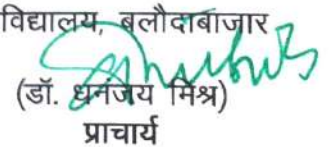 विद्यालय, बलौदाबाजार
(डॉ. धनंजय मिश्र)
प्राचार्य